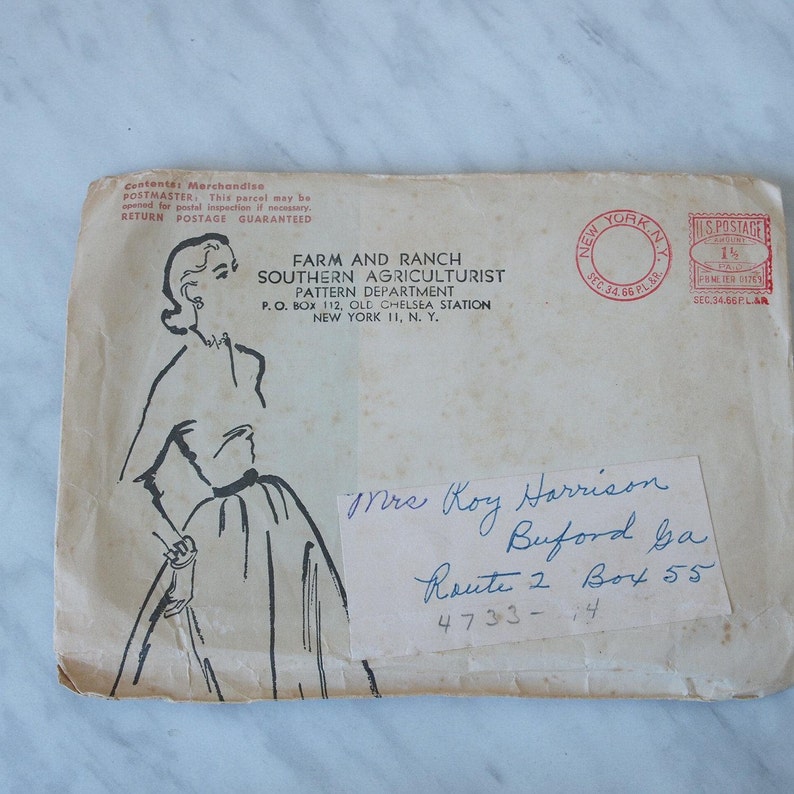 Contents: Merchandise
POSTMASTER: This parcel may be
opened for postal inspection if necessary.
RETURN POSTAGE GUARANTEED
FARM AND RANCH
SOUTHERN AGRICULTURIST
PATTERN DEPARTMENT
P. O. BOX 112, OLD CHELSEA STATION
NEW YORK 11, N. Y.
NEW YORK, N.Y.
SEC. 34.66 P.L.&R.
U.S. POSTAGE
AMOUNT
1½
PAID
P B METER 01769
SEC. 34.66 P.L.&R.
Mrs Roy Harrison
Buford Ga
Route 2 Box 55
4733- 14